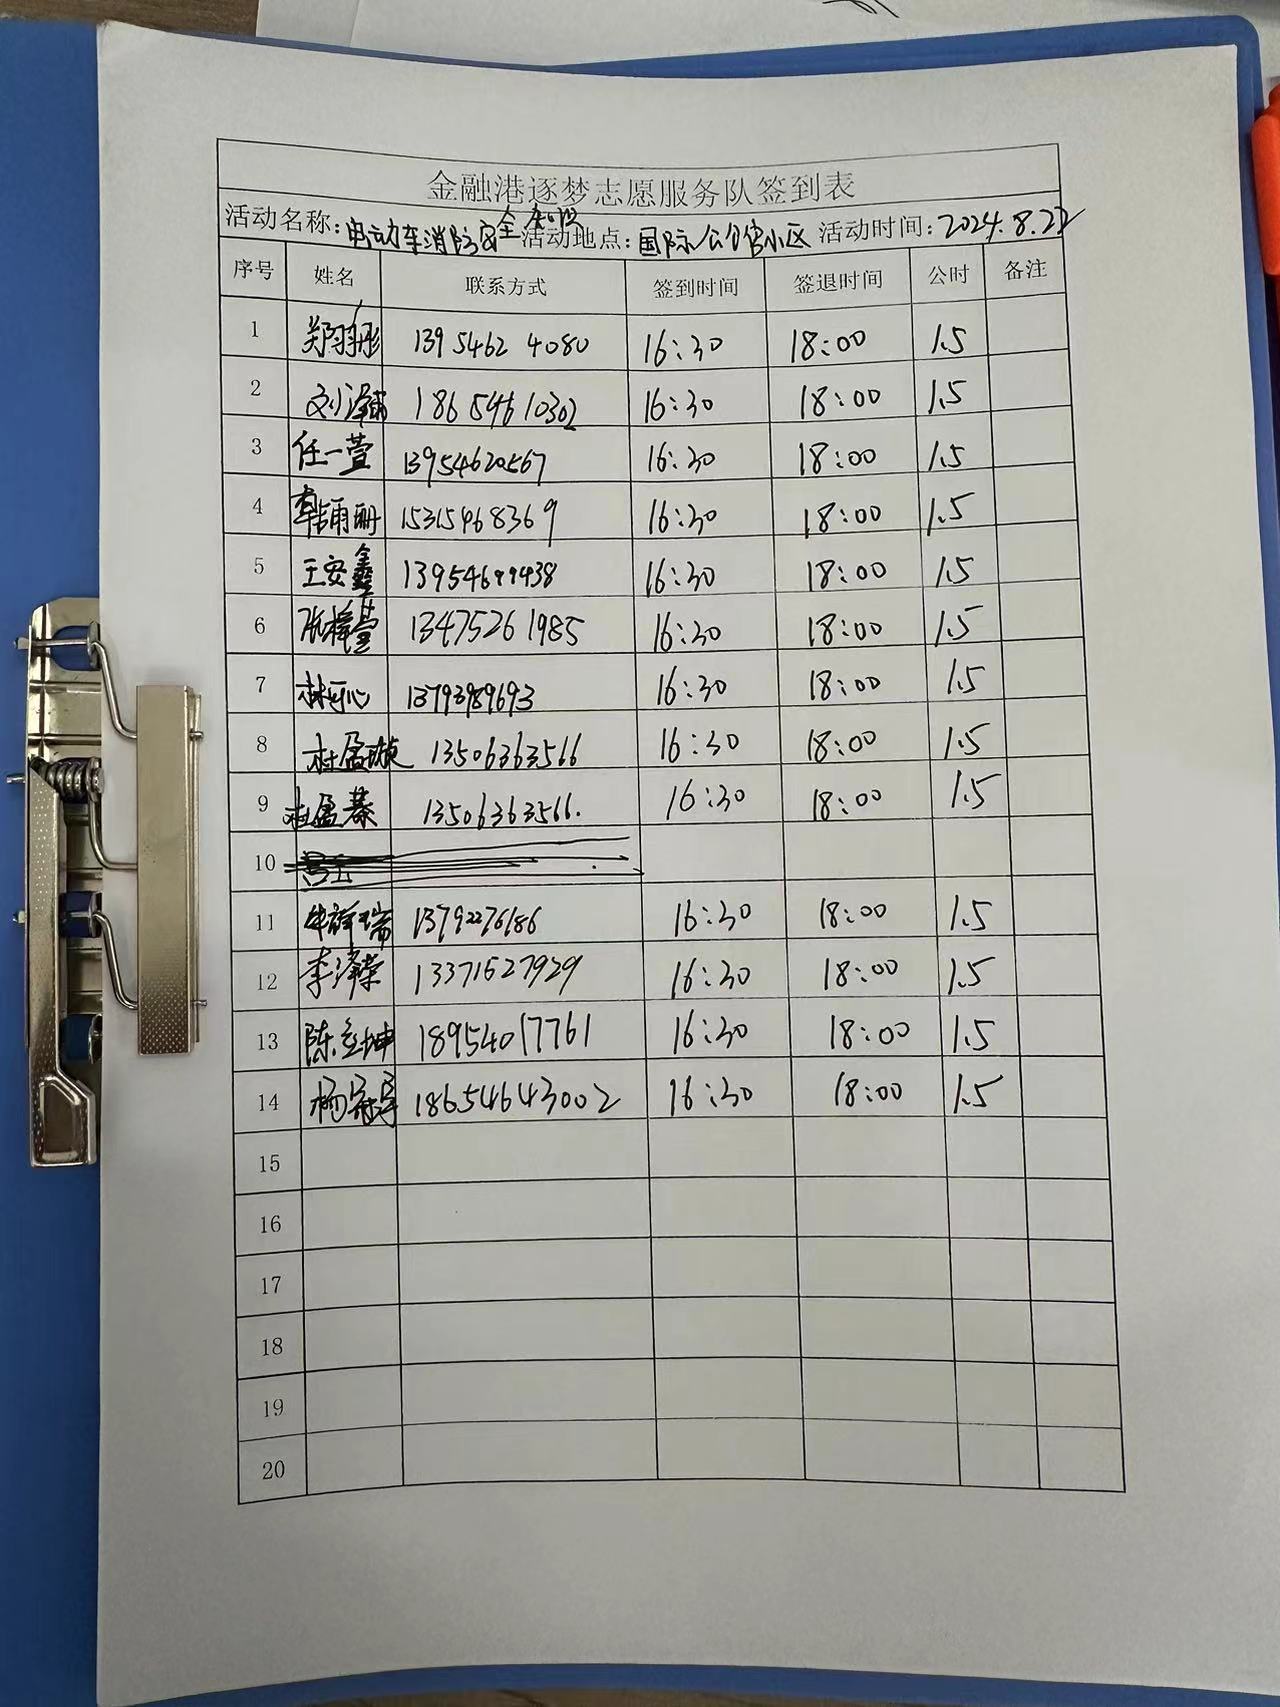 金融港逐梦志愿服务队签到表
活动名称:电动车消防安全知识 活动地点:国际公馆小区 活动时间:2024.8.22
序号 姓名 联系方式 签到时间 签退时间 公时 备注
1 郑羽彤 139 5462 4080 16:30 18:00 1.5
2 刘泽 18654610302 16:30 18:00 1.5
3 任一萱 13954620567 16:30 18:00 1.5
4 韩雨珊 15315468369 16:30 18:00 1.5
5 王安鑫 13954699438 16:30 18:00 1.5
6 张梓萱 13475261985 16:30 18:00 1.5
7 林可心 13793989693 16:30 18:00 1.5
8 杜盈璇 13506363566 16:30 18:00 1.5
9 杜盈蓁 13506363566. 16:30 18:00 1.5
10
11 牟祥瑞 13792276186 16:30 18:00 1.5
12 李泽荣 13371527929 16:30 18:00 1.5
13 陈立坤 18954017761 16:30 18:00 1.5
14 杨宇 18654643002 16:30 18:00 1.5
15
16
17
18
19
20